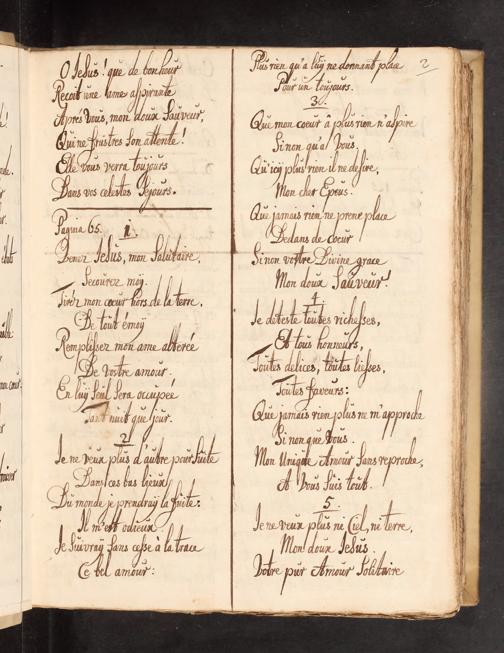 O Jesus! que de bonheur
Recoit une lame aspirante
Apres vous, mon doux Sauveur,
Qui ne frustres son attente!
Elle vous verra toujours
Dans vos celestes Sejours.
Pagina 65.
1.
Venez Jesus, mon Salutaire,
Secourez moy.
Tirez mon cœur hors de la terre,
De tout émoÿ
Remplissez mon ame alterée
De vostre amour.
En luy seul sera occupée
Tant nuit que jour.
2
Je ne veux plus d'autre poursuite
Dans ces bas lieux,
Du monde je prendraÿ la fuite:
Il m'est odieux
Je suivraÿ sans cesse à la trace
Ce bel amour:
Plus rien qu'a luÿ ne donnant place
Pour un toujours.
2
3.
Que mon coeur â plus rien n'aspire
Si non qu'a Vous.
Qu'icy plus rien il ne desire,
Mon cher Epous.
Que jamais rien ne prene place
Dedans de coeur
Si non vostre Divine grace
Mon doux Sauveur.
4
Je déteste toutes richesses,
Et tous honneurs,
Toutes delices, toutes liesses,
Toutes faveurs:
Que jamais rien plus ne m'approche
Si non que Vous.
Mon Unique Amour sans reproche,
A Vous suis tout.
5.
Je ne veux plus ni Ciel, ni terre,
Mon doux Jesus.
Votre pur Amour Solitaire